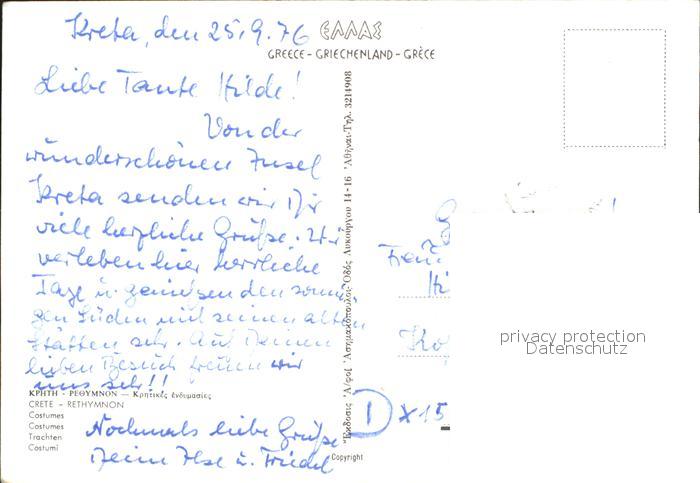 Kreta, den 25.9.76
ΕΛΛΑΣ
GREECE - GRIECHENLAND - GRÈCE
Liebe Tante Hilde!
Von der
wunderschönen Insel
Kreta senden wir Dir
viele herzliche Grüße. Wir
verleben hier herrliche
Tage u. genießen den sonni-
gen Süden mit seinen alten
Stätten sehr. Auf Deinen
lieben Besuch freuen wir
uns sehr!!
Nochmals liebe Grüße
Deine Ilse u. Friedel
ΚΡΗΤΗ - ΡΕΘΥΜΝΟΝ — Κρητικὲς ἐνδυμασίες
CRETE - RETHYMNON
Costumes
Costumes
Trachten
Costumi
Ἔκδοσις Ἀ/φοὶ Ἀστημακόπουλος Ὁδὸς Λυκούργου 14-16 Ἀθῆναι-Τηλ. 3211908
Copyright
Frau
Hi
Ko
D x15
privacy protection
Datenschutz